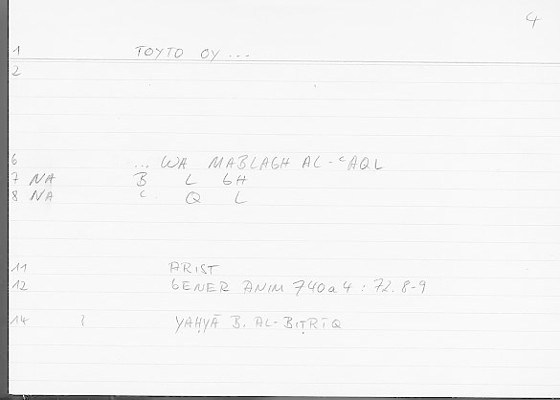 4
1 TOYTO OY ...
2
6 ... WA MABLAGH AL-ʿAQL
7 NA B L GH
8 NA ʿ Q L
11 ARIST
12 GENER ANIM 740a4 : 72.8-9
14 YAḤYĀ B. AL-BIṬRĪQ